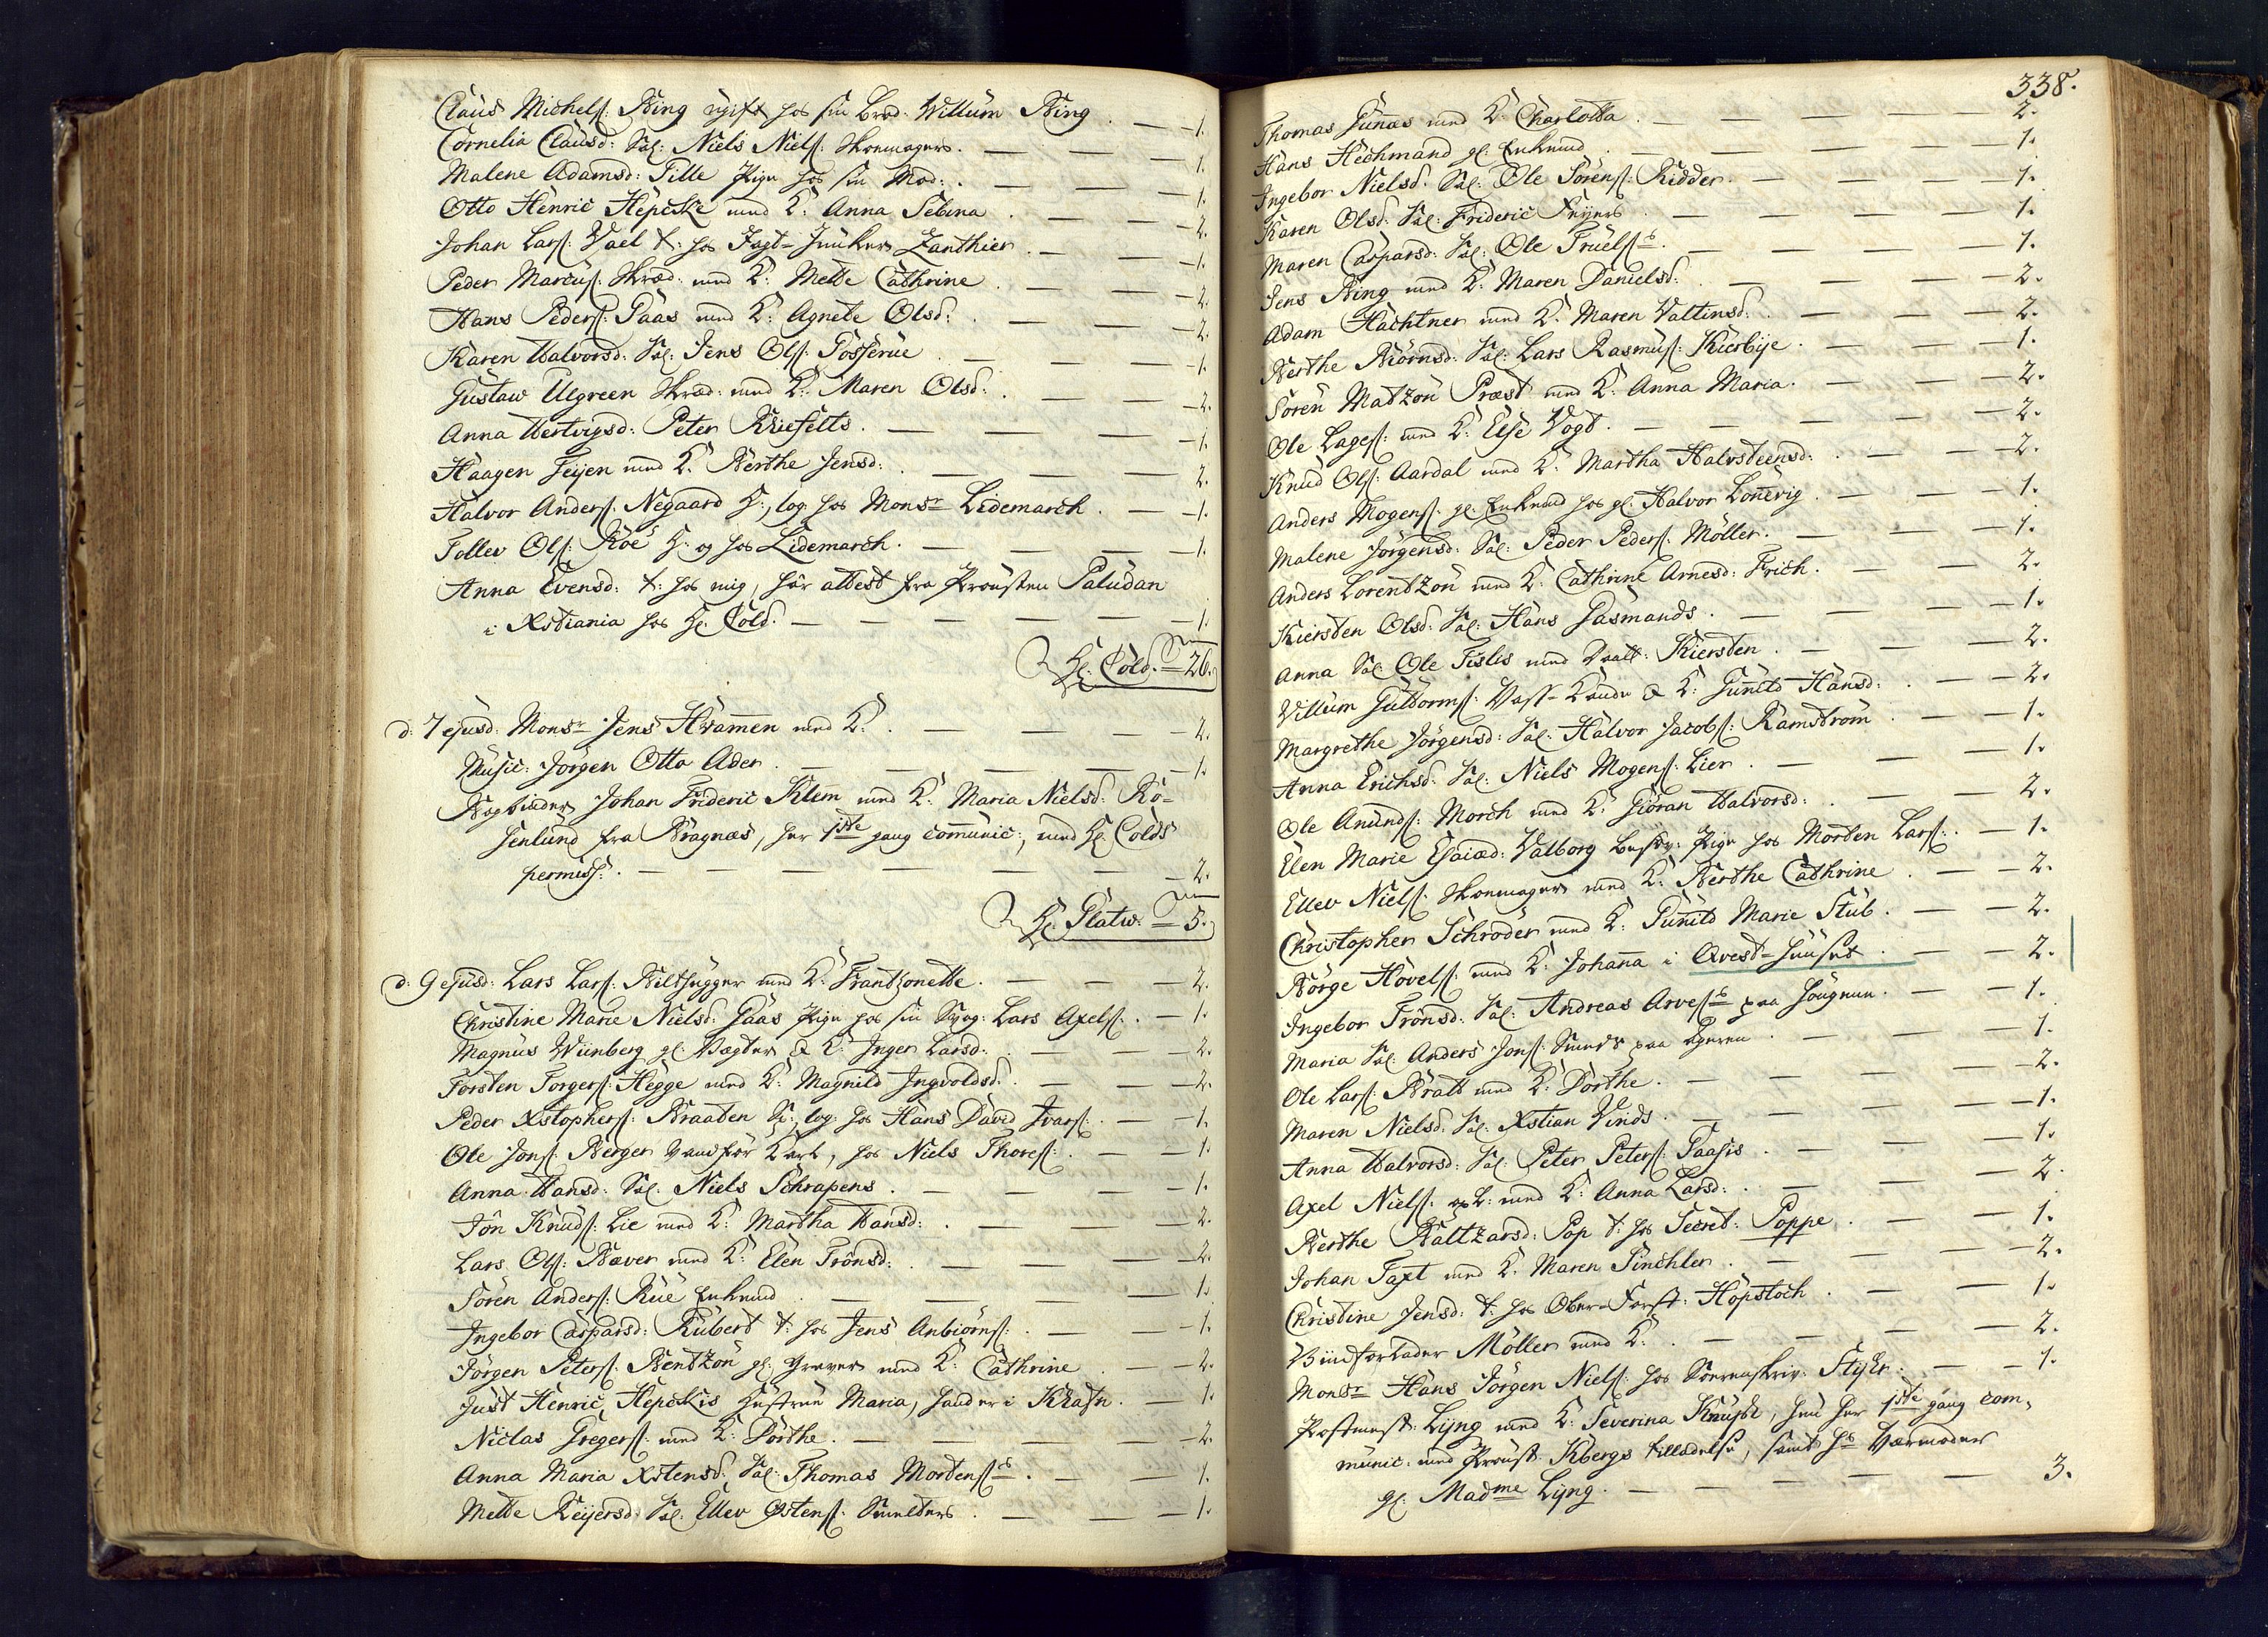 Claus Michels: Bing ugift hos sin Brod: Willum Bing . — 1.
Cornelia Clausd: Sal: Niels Niels: Skomagers . — — — 1.
Malene Adamsd: Pille Pige hos sin Mod: . — — — 1.
Otto Henric Hepcke med K: Anna Sebina . — — 2.
Johan Lars: Vael t: hos Jagt-Junker Zanthier . — — 1.
Peder Marcus: Skræd: med K: Mette Cathrine . — — 2.
Hans Peders: Paas med K: Agnete Olsd: . — — 2.
Karen Halvorsd: Sal: Jens Ols: Fosserue . — — — 1.
Gustaw Ulgreen Skræd: med K: Maren Olsd: . — — 2.
Anna Hertvigsd: Peter . — — — 1.
Haagen Feijen med K: Berthe Jensd: . — — — 2.
Halvor Anders: Negaard S:, log: hos Monsr Lidemarch . — 1.
Tollev Ols: Roe S: og hos Lidemarch . — — — 1.
Anna Evensd: t: hos mig, har attest fra Provsten Paludan
i Xstiania hos Hr: Cold. — — — — — 1.
Hr: Cold. — 26.
d: 7 ejusd: Monsr Jens Hvamen med K: . — — — 2.
Music: Jörgen Otto Ader . — — — — — 1.
Bogbinder Johan Frideric Klem med K: Maria Nielsd: Ro-
senlund fra Bragnæs, her 1ste gang communic:, med Hr: Colds
permiss: . — — — — — — — 2.
Hr: Platw: — 5.
d: 9 ejusd: Lars Lars: Bilthugger med K: Frantzonette . — — — 2.
Christine Marie Nielsd: Gaas Pige hos sin Svog: Lars Axels: . — 1.
Magnus Wiinberg gl: Vægter & K: Inger Larsd: . — — 2.
Torsten Torgers: Hegge med K: Magnild Ingvoldsd: . — — 2.
Peder Xstophers: Braaten S:, log: hos Hans David Ivars: . — 1.
Ole Jons: Berger Vandför Karl, hos Niels Thores: . — — 1.
Anna Hansd: Sal: Niels Schrapens . — — — — 1.
Jôn Knuds: Lie med K: Martha Hansd: . — — — 2.
Lars Ols: Bæver med K: Elen Trönsd: . — — — 2.
Sören Anders: Rue Enkemd . — — — — 1.
Ingebor Casparsd: Rubert t: hos Jens Anbiörns: . — — 1.
Jörgen Peters: Bentzon gl: Graver med K: Cathrine — 2.
Just Henric Hepckis Hustrue Maria, hand er i . — 1.
Niclas Gregers: med K: Dorthe . — — — — 2.
Anna Maria Xstensd: Sal: Thomas Mortens:s . — — 1.
Mette Reijersd: Sal: Ellev Østens: Smelters . — — 1.
338.
Thomas Junas med K: Charlotta . — — — — 2.
Hans Hechmand gl: Enkemd . — — — — 1.
Ingebor Nielsd: Sal: Ole Sörens: Ridder . — — — 1.
Karen Olsd: Sal: Frideric . — — — 1.
Maren Casparsd: Sal: Ole Truels:s . — — — 1.
Jens Bing med K: Maren Danielsd: . — — — 2.
Adam Hachtner med K: Maren Valtinsd: . — — 2.
Berthe Biörnsd: Sal: Lars Rasmus: Kierbije . — — 1.
Sören Matzon Præst med K: Anna Maria . — — 2.
Ole Lages: med K: Else Vogt . — — — — 2.
Knud Ols: Aardal med K: Martha Halvsteensd: . — 2.
Anders Mogens: gl: Enkemd hos gl: Halvor Lonevig . — 1.
Malene Jörgensd: Sal: Peder Peders: Möller . — — 1.
Anders Lorentzon med K: Cathrine Arnesd: Frich . — 2.
Kiersten Olsd: Sal: Hans Gasmands . — — — 1.
Anna Sal: Ole Fislis med Daatt: Kiersten . — — 2.
Villum Guttorms: & K: Gunild Hansd: . — — 2.
Margrethe Jörgensd: Sal: Halvor Jacobs: Ramström . — 1.
Anna Erichsd: Sal: Niels Mogens: Lier . — — 1.
Ole Anunds: Morch med K: Giöran Halvorsd: . — — 2.
Elen Marie Esaiæd: Valborg Pige hos Morten Lars: . — 1.
Ellev Niels: Skomager med K: Berthe Cathrine . — 2.
Christopher Schroder med K: Gunild Marie Stub . — 2.
Börge Hovels: med K: Johana i Qvest-Huuset . — 2.
Ingebor Trönsd: Sal: Andreas Arves:s paa Hougene . — 1.
Maria Sal: Anders Jons: Smeds paa . — — 1.
Ole Lars: Bratt med K: Dorthe . — — — — 2.
Maren Nielsd: Sal: Xstian Vinds . — — — 1.
Anna Halvorsd: Sal: Peter Peters: Paasis . — — 1.
Axel Niels: med K: Anna Larsd: . — — — 2.
Berthe Baltzarsd: Pop t: hos Secret: Poppe . — — 1.
Johan Taxt med K: Maren Pinchler . — — — 2.
Christine Jensd: t: hos Ober-Forst: Hopstoch . — — 1.
Möller med K: . — — — — 2.
Monsr Hans Jörgen Niels: hos Sorenskriv: . — 1.
Postmest: Lyng med K: Severina , hun her 1ste gang com-
munic: med Provst: Kbergs tilladelse, samt hs Værmoder
gl: Madme Lyng . — — — — — 3.